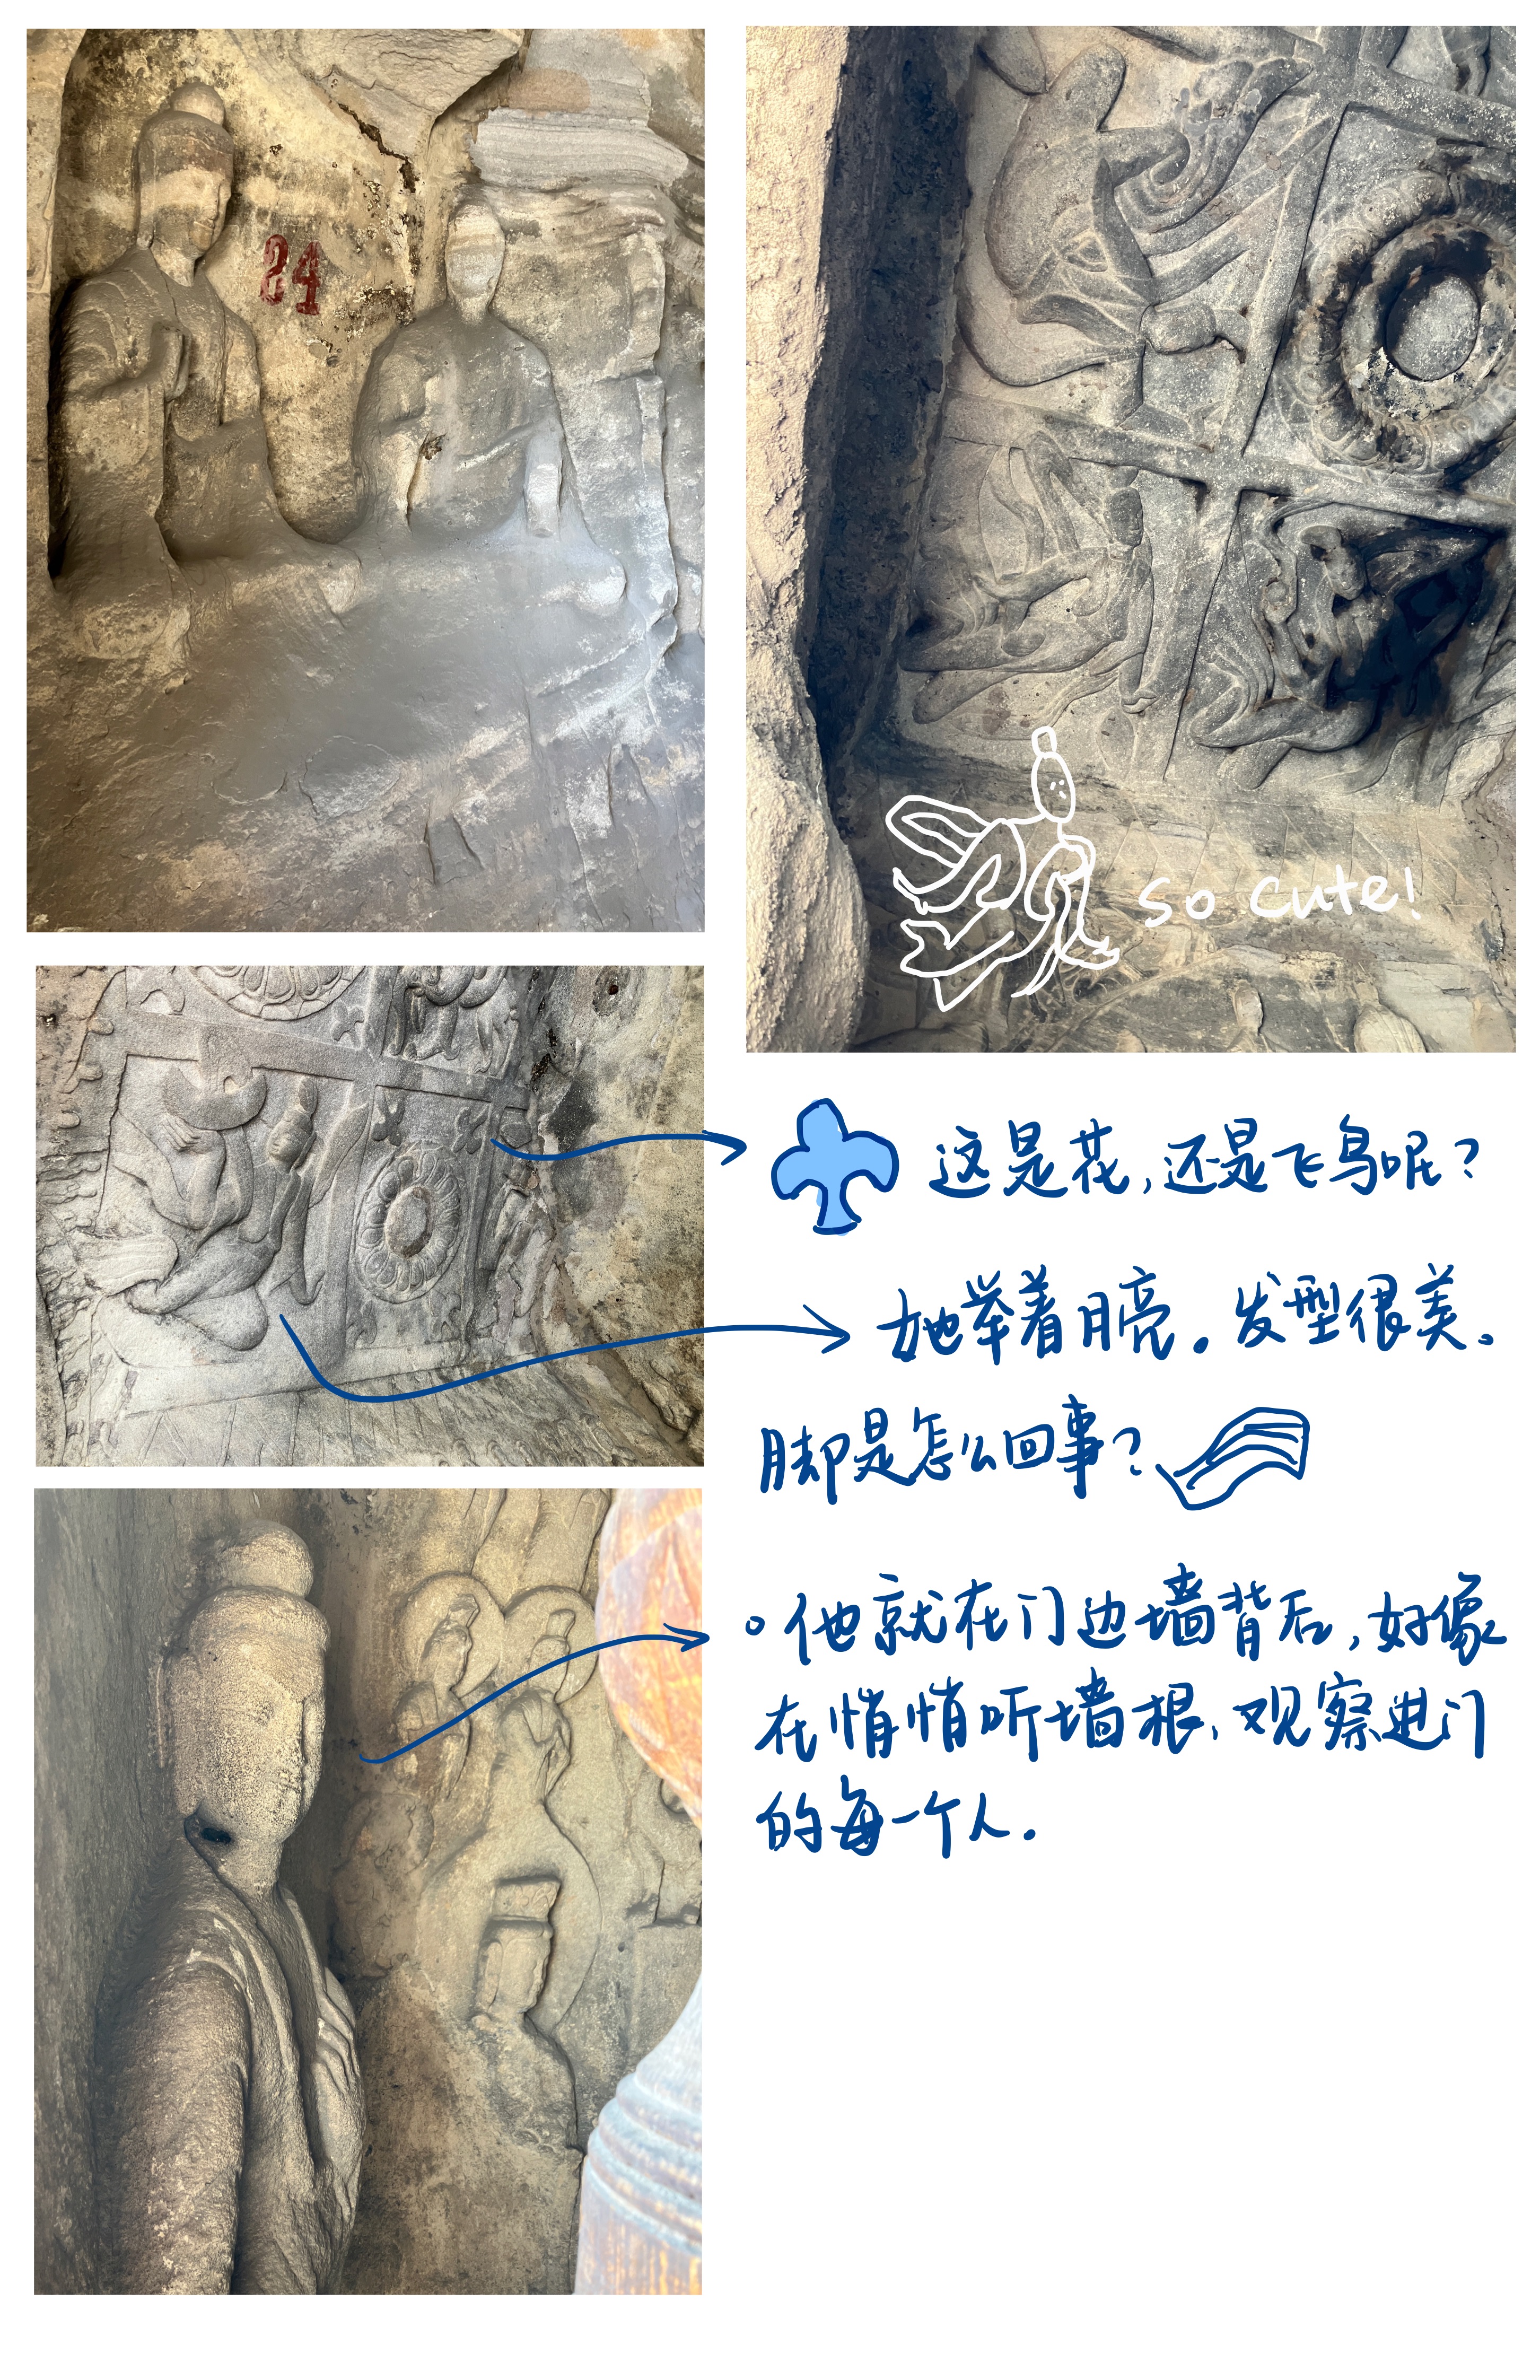 84
so cute!
这是花,还是飞鸟呢?
她举着月亮。发型很美。
脚是怎么回事?
。他就在门边墙背后,好像
在悄悄听墙根,观察进门
的每一个人.